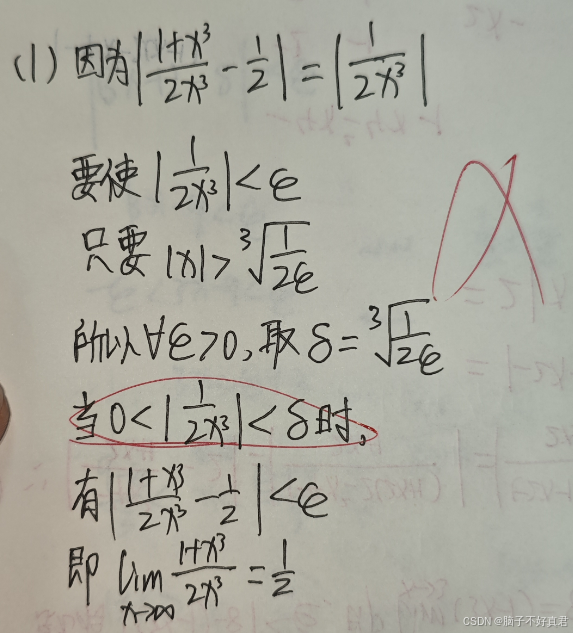 (1) 因为|(1+x³)/(2x³) - 1/2| = |1/(2x³)|
要使|1/(2x³)|<ϵ
只要|x|>∛(1/(2ϵ))
所以∀ϵ>0,取δ=∛(1/(2ϵ))
当0<|1/(2x³)|<δ时,
有|(1+x³)/(2x³) - 1/2|<ϵ
即 lim x→∞ (1+x³)/(2x³) = 1/2
CSDN @脑子不好真君